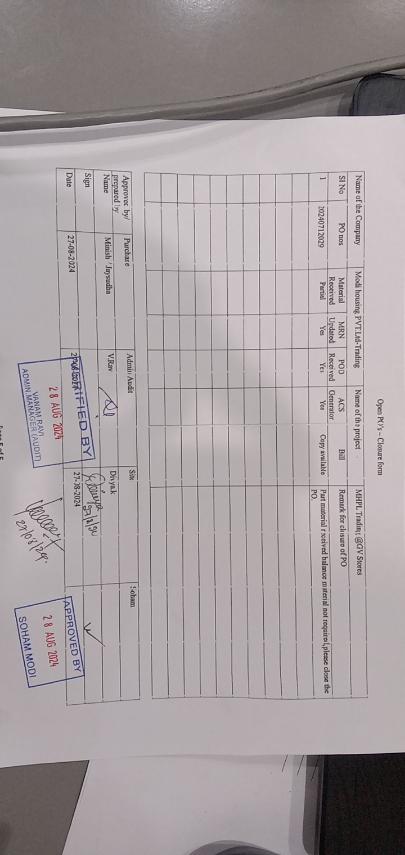 Open PO's - Closure form
Name of the Company Modi housing PVT Ltd-Trading Name of the project MHPL Trading @GV Stores
Sl No PO nos Material Received MRN Updated POD Received ACS Generator Bill Remark for closure of PO
1 20240712029 Partial Yes Yes Yes Copy available Part material received balance material not required, please close the PO.
Approved by/ prepared by Purchase Admin Audit Site Soham
Name Minish / Jaysudha V.Ravi Divyak
Sign
Date 27-08-2024 27-08-2024
VERIFIED BY
28 AUG 2024
VANAM RAVI
ADMIN MANAGER (AUDIT)
APPROVED BY
28 AUG 2024
SOHAM MODI